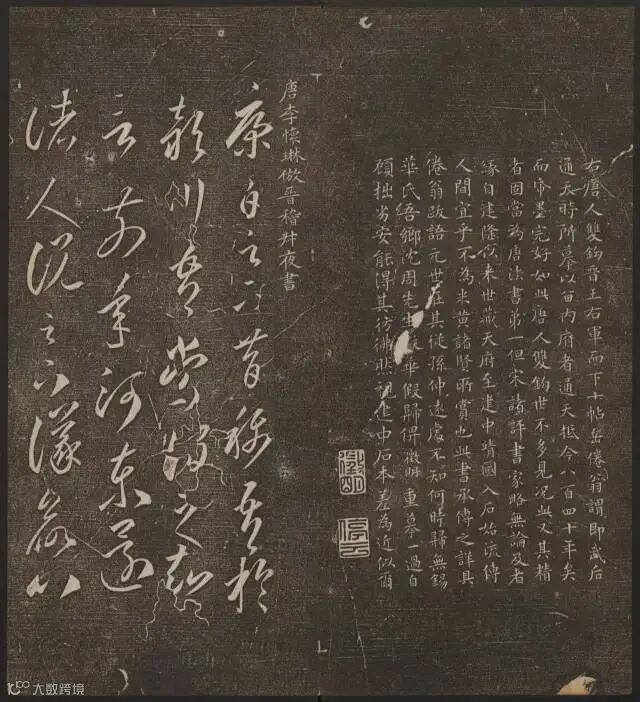 右唐人雙鈎晉王右軍而下十帖岳倦翁謂即武后
通天時所摹以留内府者通天抵今八百四十年矣
而帋墨完好如此唐人雙鈎世不多見况此又其精
者固當為唐法書第一但宋諸評書家略無論及者
緣自建隆以來世藏天府至建中靖國入石始流傳
人間宜乎不為米黄諸賢所賞也此書承傳之詳具
倦翁跋語元世在其從孫仲遠處不知何時歸無錫
華氏吾鄉沈周先生華假歸俾徵明重摹一過自
顧拙劣安能得其彷彿然視建中石本差為近似爾
徵明
停雲
唐李懷琳倣晉嵇叔夜書
康白足下昔稱吾於
潁川吾嘗謂之知
言前年河東還
諸人説足下議
大数跨境